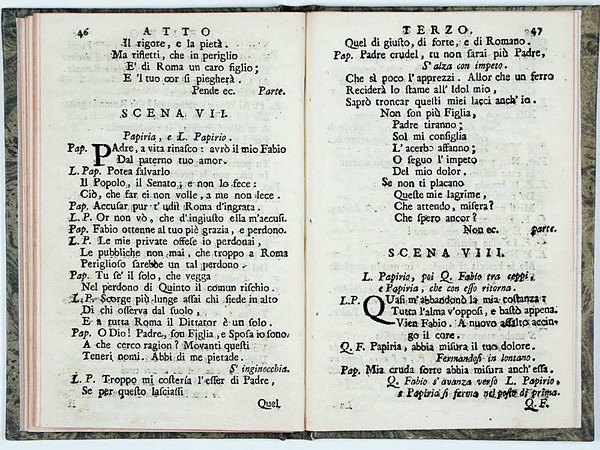 46 ATTO
Il rigore, e la pietà.
Ma rifletti, che in periglio
E' di Roma un caro figlio;
E 'l tuo cor si piegherà.
Pende ec. Parte.
SCENA VII.
Papiria, e L. Papirio.
Pap. PAdre, a vita rinasco: avrò il mio Fabio
Dal paterno tuo amor.
L. Pap. Potea salvarlo
Il Popolo, il Senato; e non lo fece:
Ciò, che far ei non volle, a me non lece.
Pap. Accusar pur t'udii Roma d'ingrata.
L. P. Or non vò, che d'ingiusto ella m'accusi.
Pap. Fabio ottenne al tuo piè grazia, e perdono.
L. P. Le mie private offese io perdonai,
Le pubbliche non mai, che troppo a Roma
Periglioso sarebbe un tal perdono.
Pap. Tu se' il solo, che vegga
Nel perdono di Quinto il comun rischio.
L. P. Scorge più lunge assai chi siede in alto
Di chi osserva dal suolo,
E a tutta Roma il Dittator è un solo.
Pap. O Dio! Padre, son Figlia, e Sposa io sono.
A che cerco ragion? Movanti questi
Teneri nomi. Abbi di me pietade.
S' inginocchia.
L. P. Troppo mi costeria l'esser di Padre,
Se per questo lasciassi
Quel
TERZO. 47
Quel di giusto, di forte, e di Romano.
Pap. Padre crudel, tu non sarai più Padre,
S' alza con impeto.
Che sì poco l'apprezzi. Allor che un ferro
Reciderà lo stame all' Idol mio,
Saprò troncar questi miei lacci anch' io.
Non son più Figlia,
Padre tiranno;
Sol mi consiglia
L' acerbo affanno;
O seguo l' impeto
Del mio dolor.
Se non ti placano
Queste mie lagrime,
Che attendo, misera?
Che spero ancor?
Non ec. parte.
SCENA VIII.
L. Papirio, poi Q. Fabio tra ceppi,
e Papiria, che con esso ritorna.
L.P. QUasi m'abbandonò la mia costanza:
Tutta l'alma v'opposi, e bastò appena.
Vien Fabio. A nuovo assalto accin-
go il core.
Q. F. Papiria, abbia misura il tuo dolore.
Fermandosi in lontano.
Pap. Mia cruda sorte abbia misura anch' essa.
Q. Fabio s'avanza verso L. Papirio,
e Papiria si ferma nel posto di prima.
Q. F.